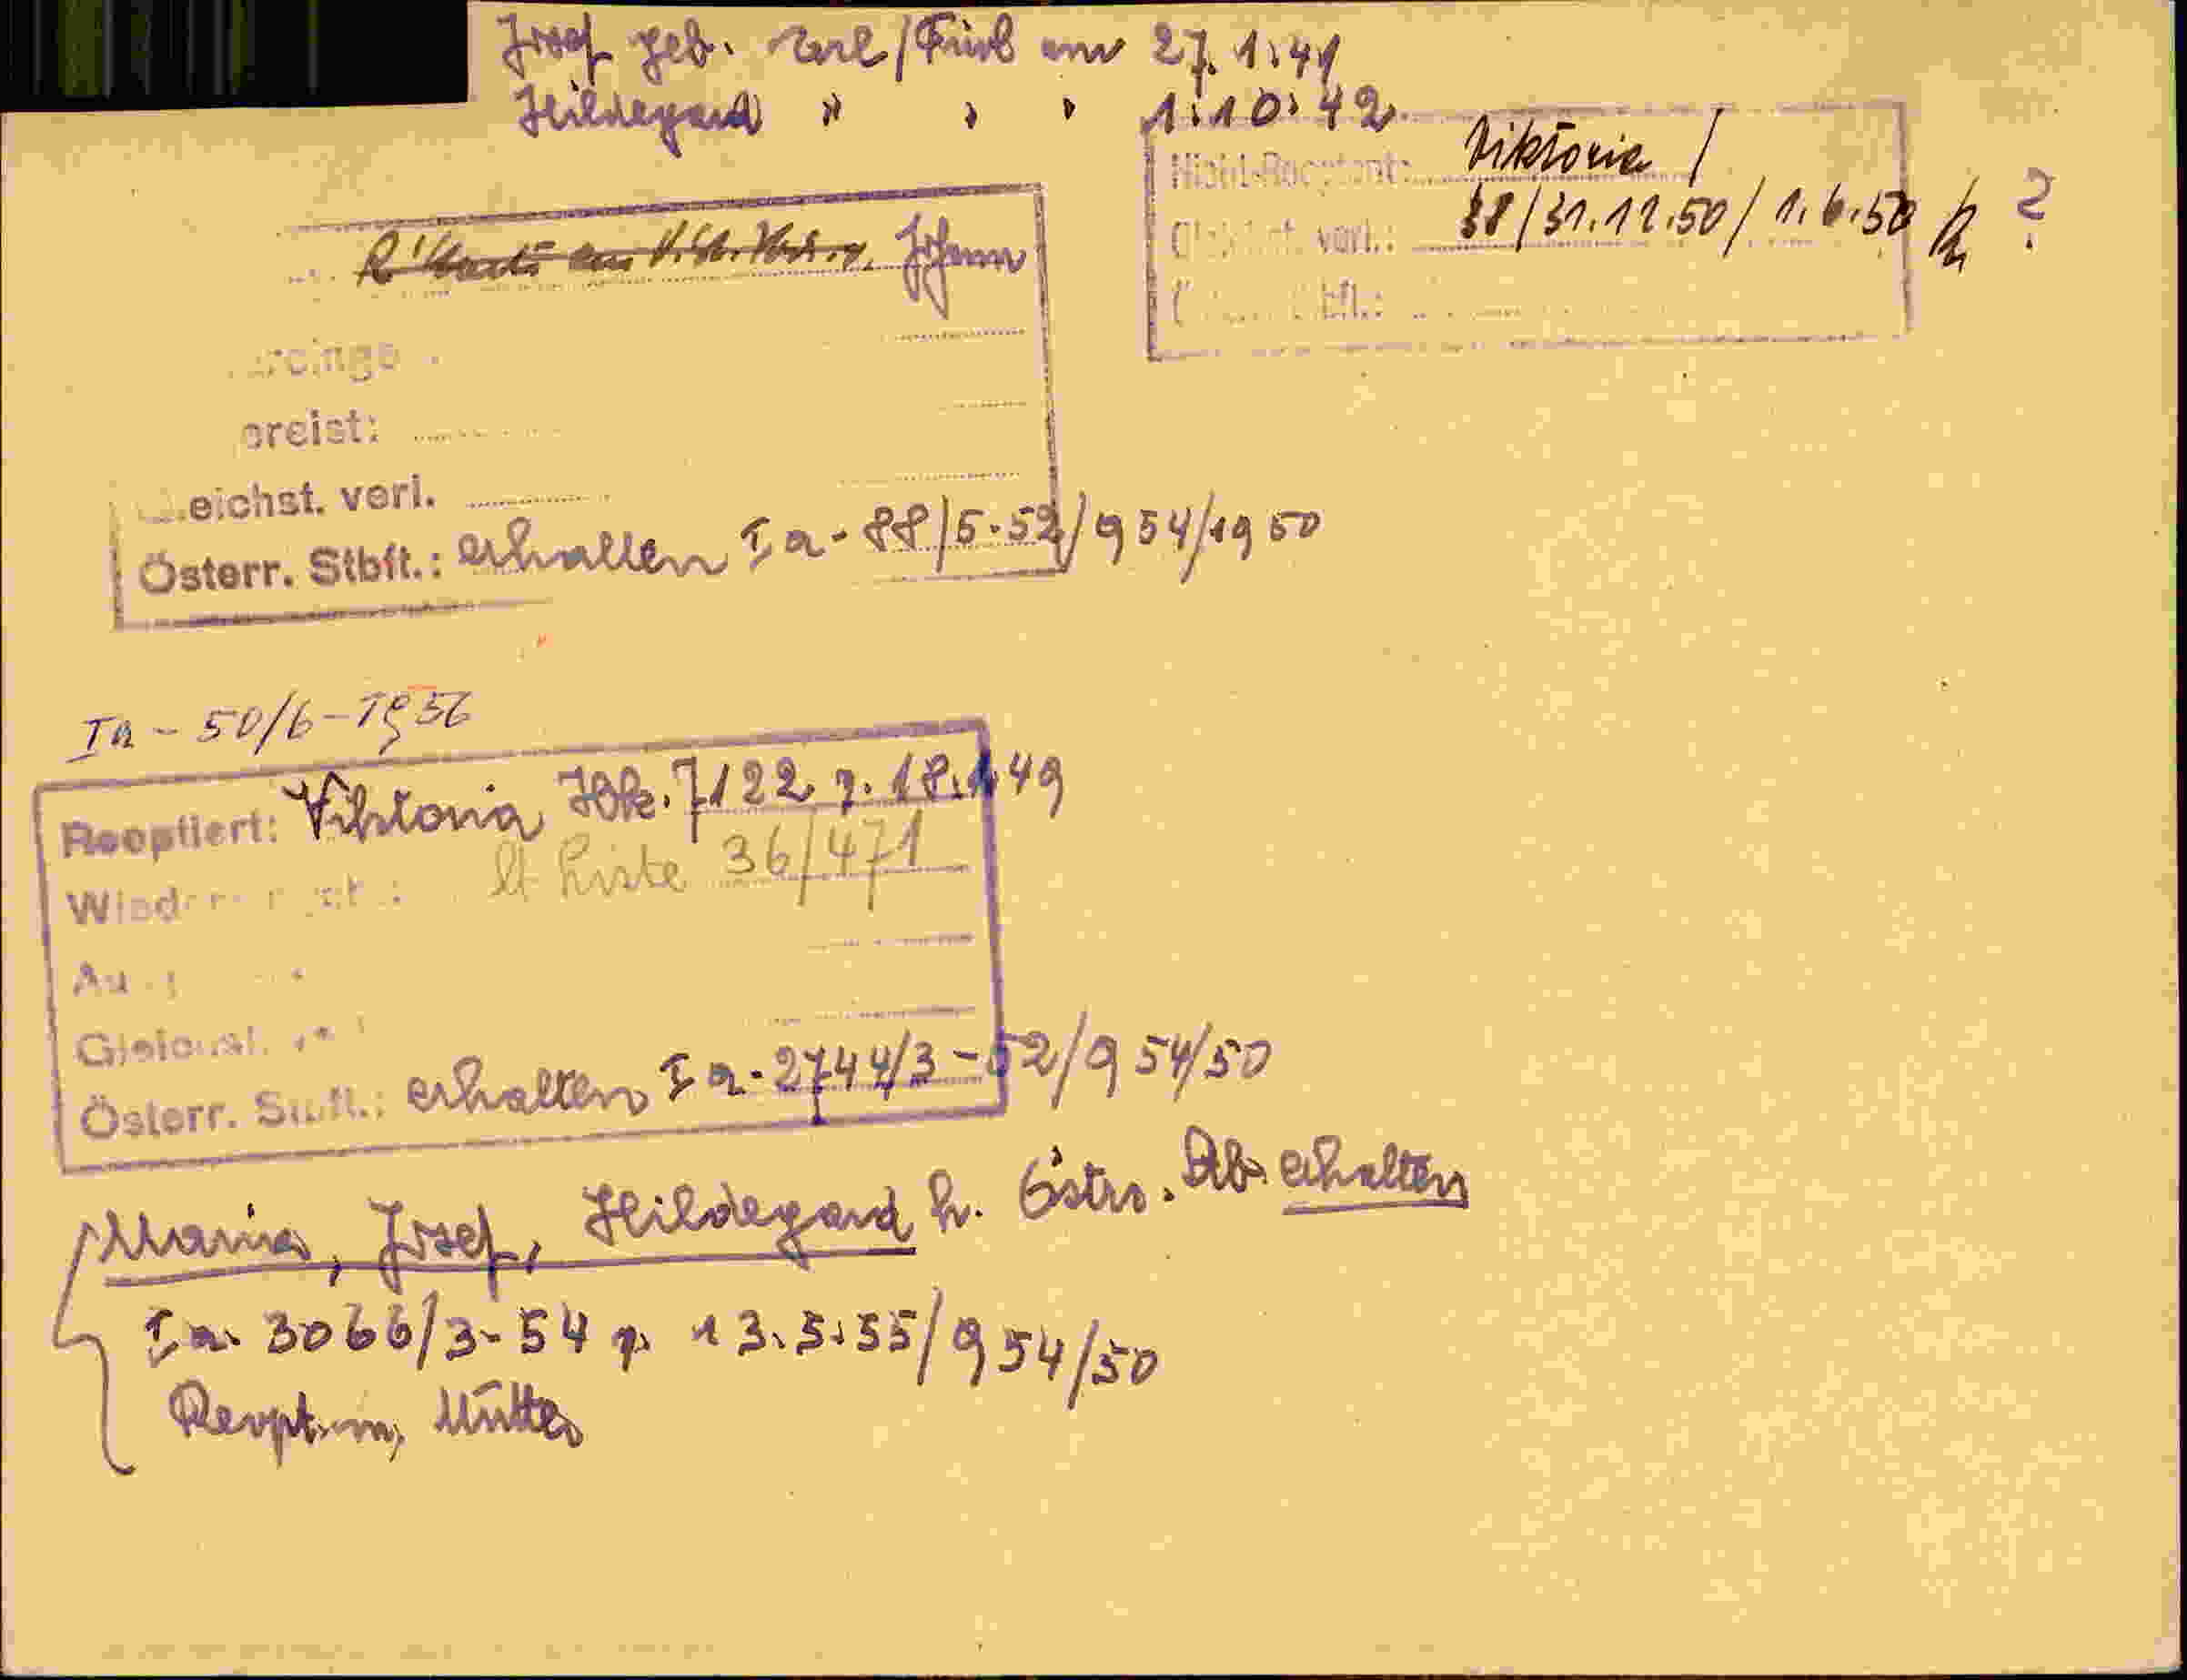 Josef geb. Zirl / am 27.1.41
Hildegard " " " 1.10.42
Nicht-Reoptant: Viktoria /
Gleichst. verl.: 38/31.12.50/1.6.50 ?
Johann
preist:
eichst. verl.
Österr. Stbft.: erhalten Ia-88/5-52/954/1950
Ia - 50/6-1956
Reoptiert: Viktoria Hbk. 7122 v. 18.1.49
lt Liste 36/471
Gleichst.
Österr. Stbft.: erhalten Ia-2744/3-52/954/50
Maria, Josef, Hildegard h. Östr. Stb. erhalten
Ia. 3066/3-54 v. 13.5.55/954/50
Reoption, Mutter